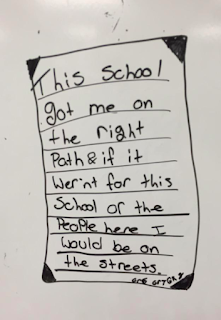 This School
got me on
the right
Path & if it
Wer'nt for this
School or the
People here I
would be on
the streets.